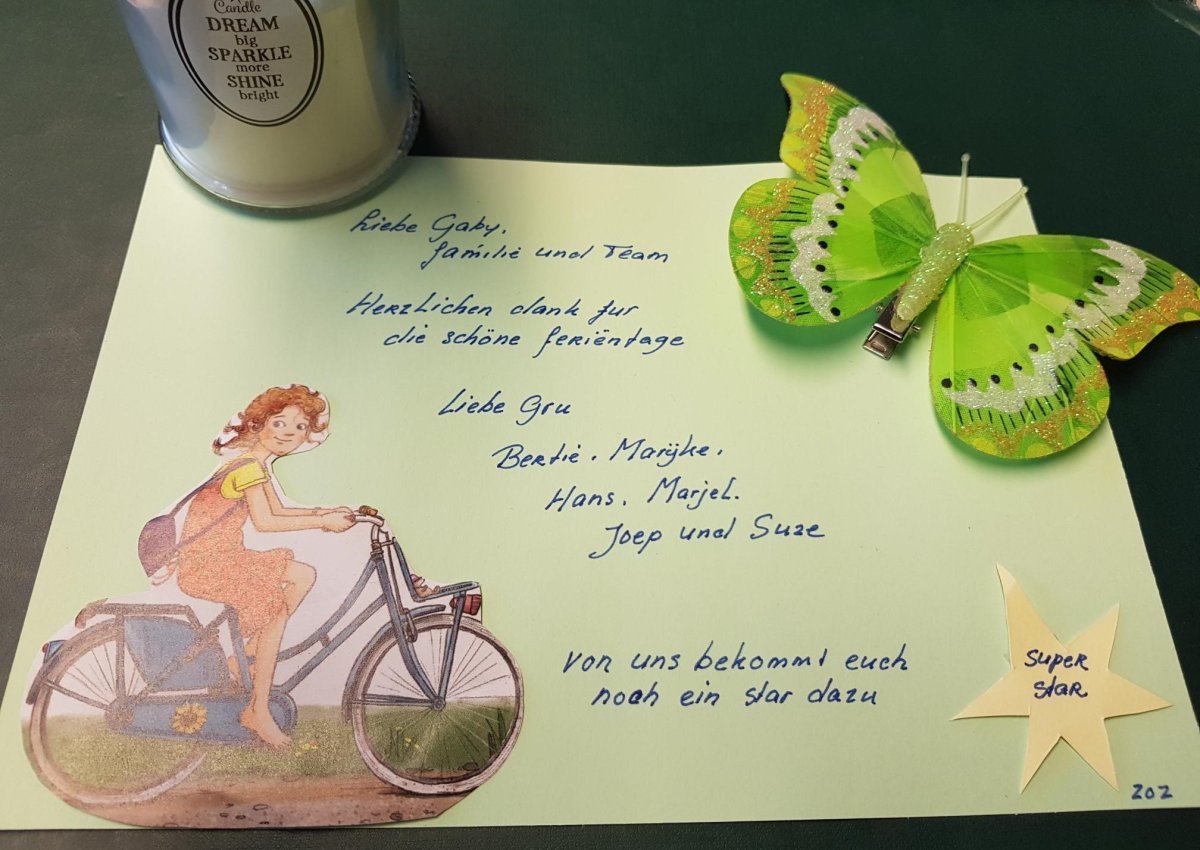 Candle
DREAM
big
SPARKLE
more
SHINE
bright
Liebe Gaby,
familie und Team
Herzlichen dank fur
die schöne feriëntage
Liebe Gru
Bertie, Marijke,
Hans, Marjel.
Joep und Suze
Von uns bekommt euch
noch ein star dazu
Super
Star
202